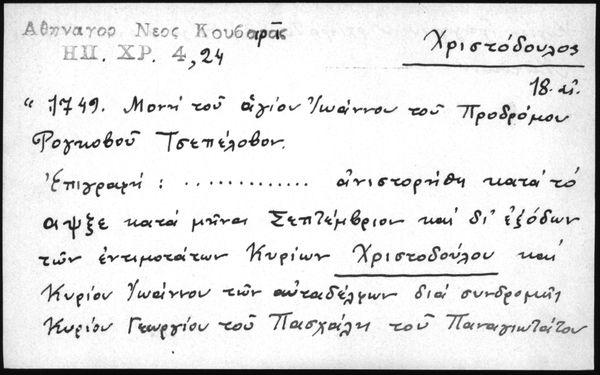 Αθηναγορ Νεος Κουβαρᾶς
ΗΠ. ΧΡ. 4, 24
Χριστόδουλος
18. αἰ.
" 1749. Μονή τοῦ ἁγίου Ἰωάννου τοῦ Προδρόμου
Ρογκοβοῦ Τσεπέλοβου.
Ἐπιγραφή : ............. ἀνιστορήθη κατά τό
αψξε κατά μῆναι Σεπτέμβριον καί δι' ἐξόδων
τῶν ἐντιμοτάτων Κυρίων Χριστοδούλου καί
Κυρίου Ἰωάννου τῶν αὐταδέλφων διά συνδρομῆς
Κυρίου Γεωργίου τοῦ Πασχάλη τοῦ Παναγιωτάτου